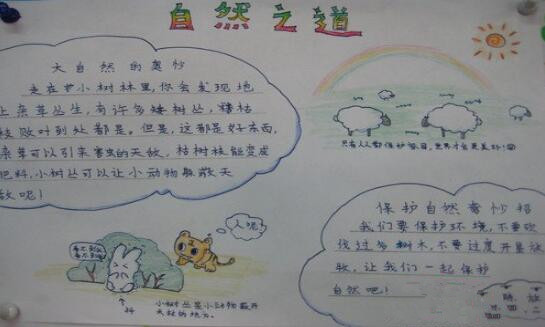 自然之道
大自然的奥妙
走在小树林里,你会发现地
上杂草丛生,有许多矮树丛,枯
枝败叶到处都是。但是,这都是好东西,
杂草可以引来害虫的天敌,枯树枝能变成
肥料,小树丛可以让小动物躲敌天
敌呢!
只有人人都保护家园,世界才会更美好!
看不到我
看不到我
人呢
小树丛是小动物躲开
天敌的地方。
保护自然奇妙招
我们要保护环境,不要砍
伐过多树木,不要过度开垦放
牧,让我们一起保护
自然吧!